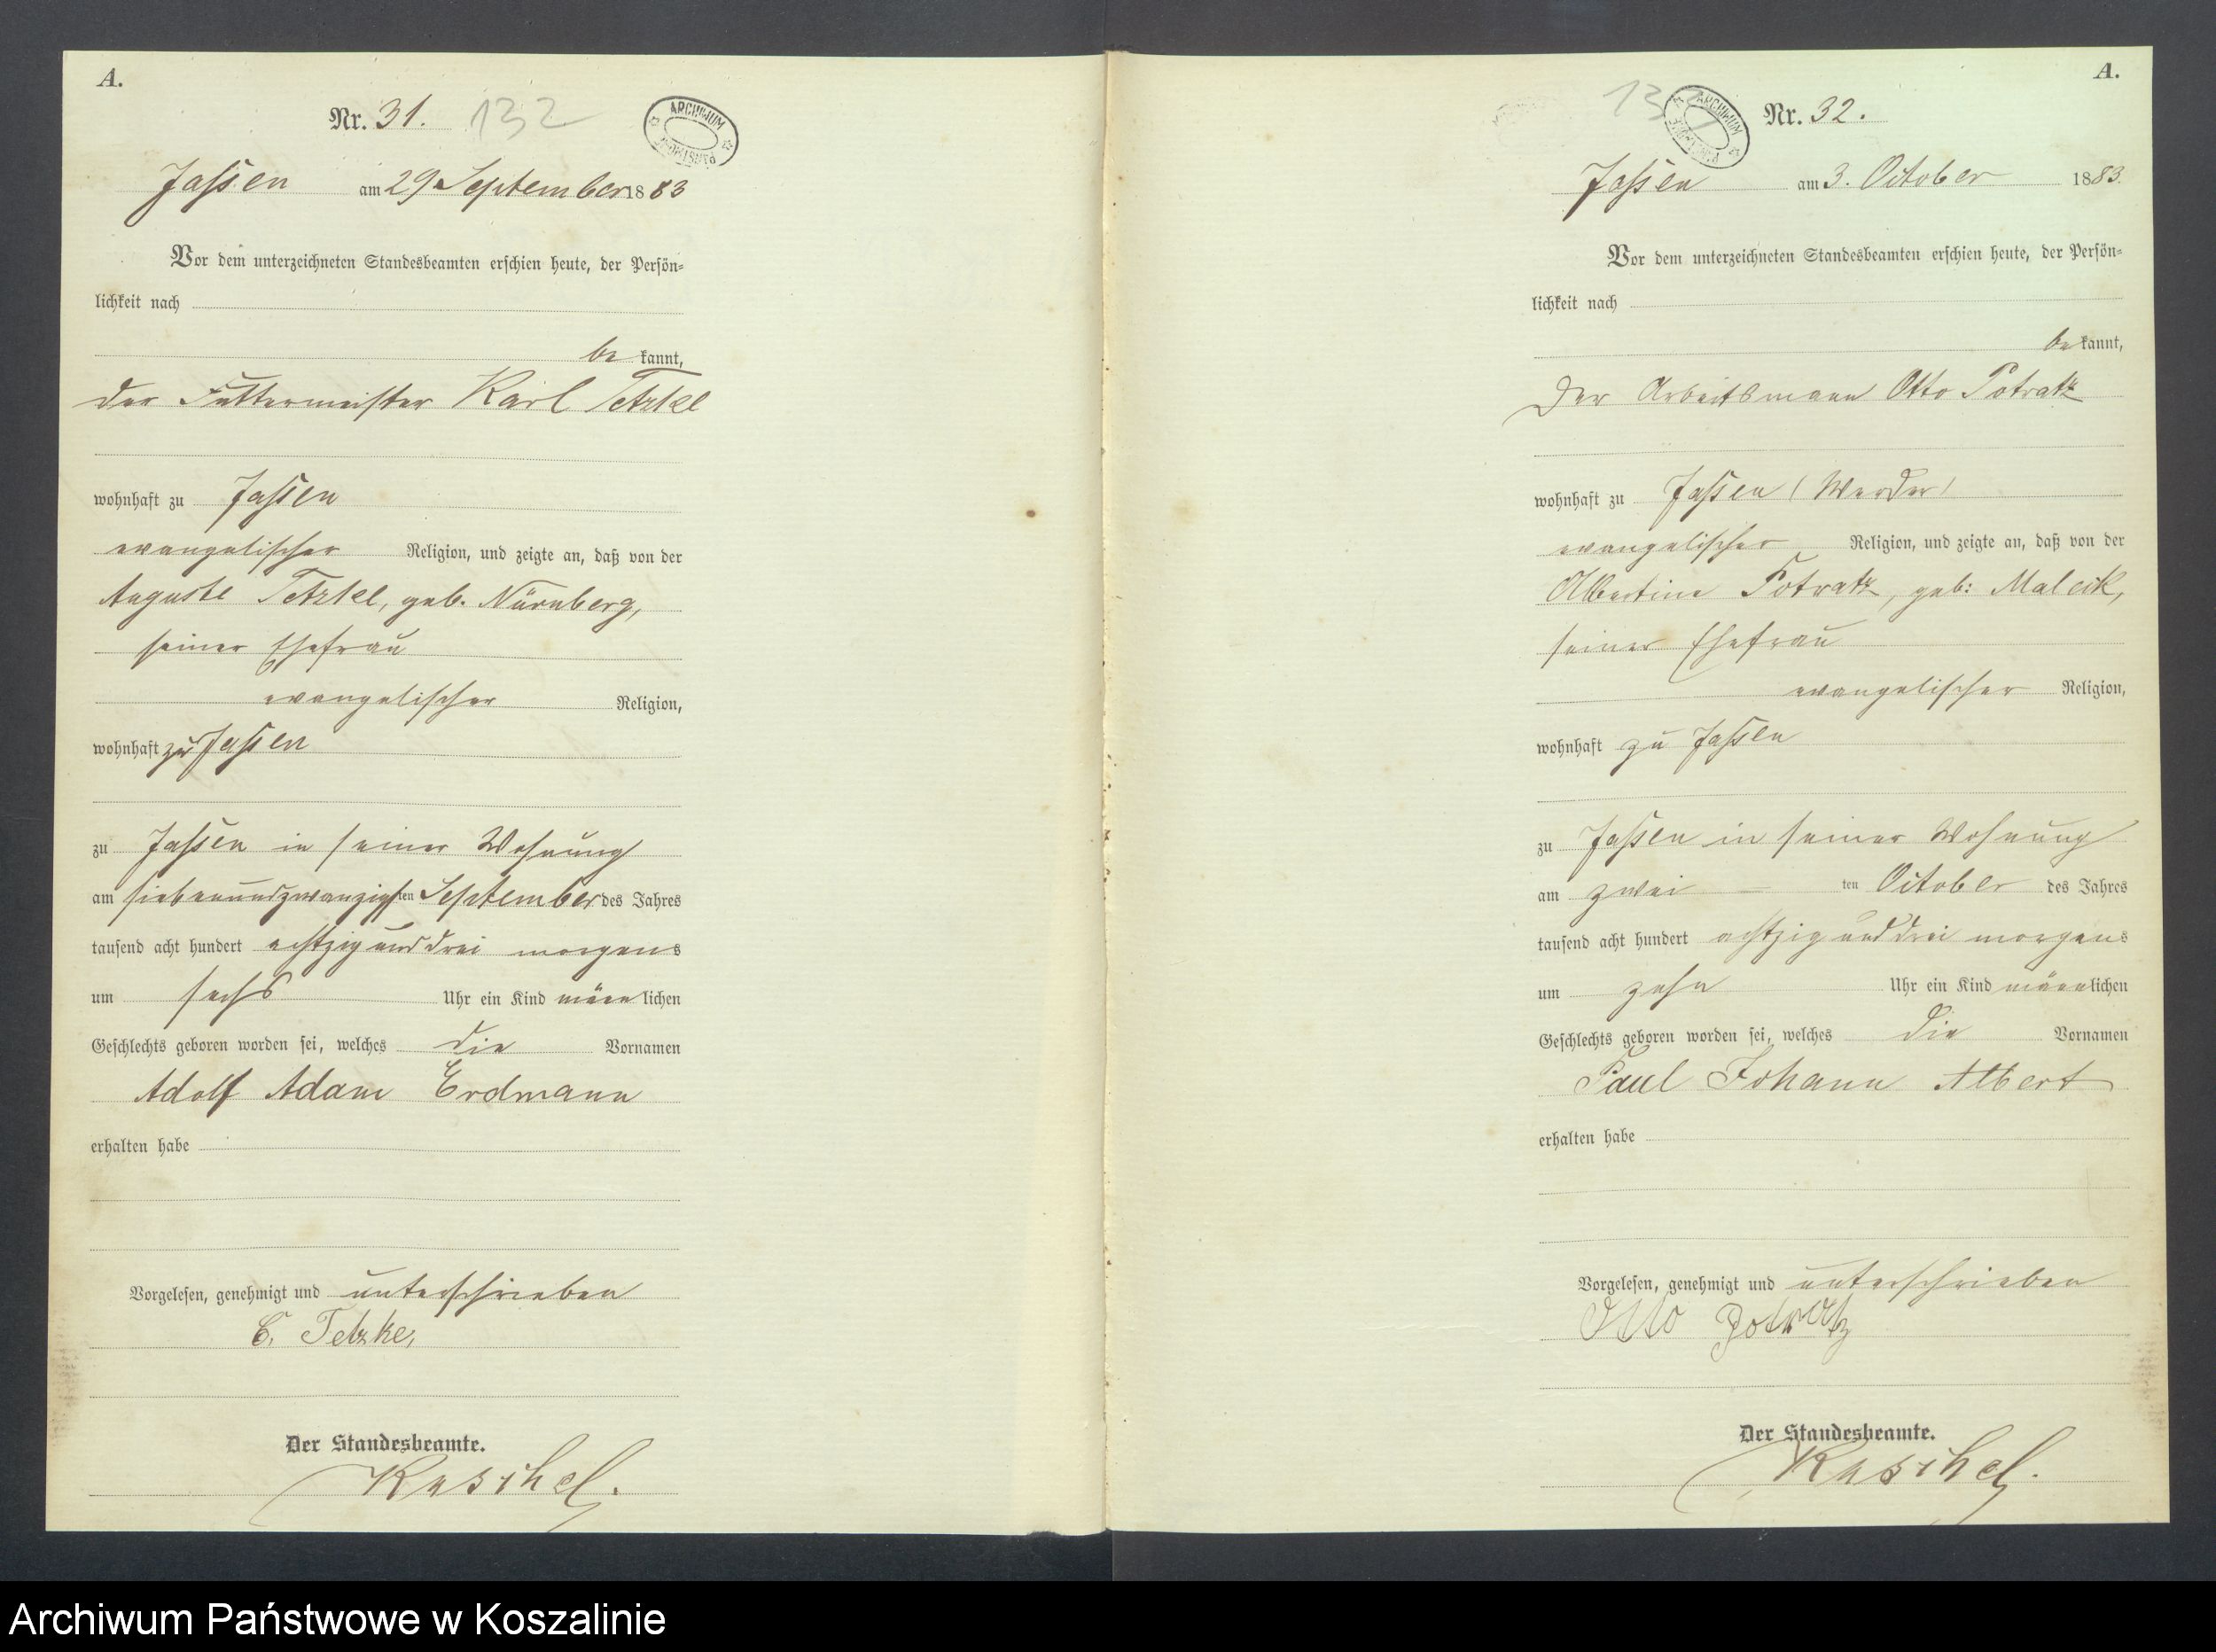 A.
Nr. 31.
132
ARCHIWUM
Jassen am 29 September 1883
Vor dem unterzeichneten Standesbeamten erschien heute, der Persön-
lichkeit nach
be kannt,
der Futtermeister Karl Tetzkel
wohnhaft zu Jassen
evangelischer Religion, und zeigte an, daß von der
Auguste Tetzkel, geb. Nürnberg,
seiner Ehefrau
evangelischer Religion,
wohnhaft zu Jassen
zu Jassen in seiner Wohnung
am siebenundzwanzigsten September des Jahres
tausend acht hundert achtzig und drei morgens
um sechs Uhr ein Kind männlichen
Geschlechts geboren worden sei, welches die Vornamen
Adolf Adam Erdmann
erhalten habe
Vorgelesen, genehmigt und unterschrieben
C. Tetzke,
Der Standesbeamte.
Kaschel.
A.
Nr. 32.
ARCHIWUM
Jassen am 3. October 1883.
Vor dem unterzeichneten Standesbeamten erschien heute, der Persön-
lichkeit nach
be kannt,
Der Arbeitsmann Otto Potratz
wohnhaft zu Jassen (Werder)
evangelischer Religion, und zeigte an, daß von der
Albertine Potratz, geb: Maleik,
seiner Ehefrau
evangelischer Religion,
wohnhaft zu Jassen
zu Jassen in seiner Wohnung
am zwei ten October des Jahres
tausend acht hundert achtzig und drei morgens
um zehn Uhr ein Kind männlichen
Geschlechts geboren worden sei, welches die Vornamen
Paul Johann Albert
erhalten habe
Vorgelesen, genehmigt und unterschrieben
Otto Potratz
Der Standesbeamte.
Kaschel.
Archiwum Państwowe w Koszalinie